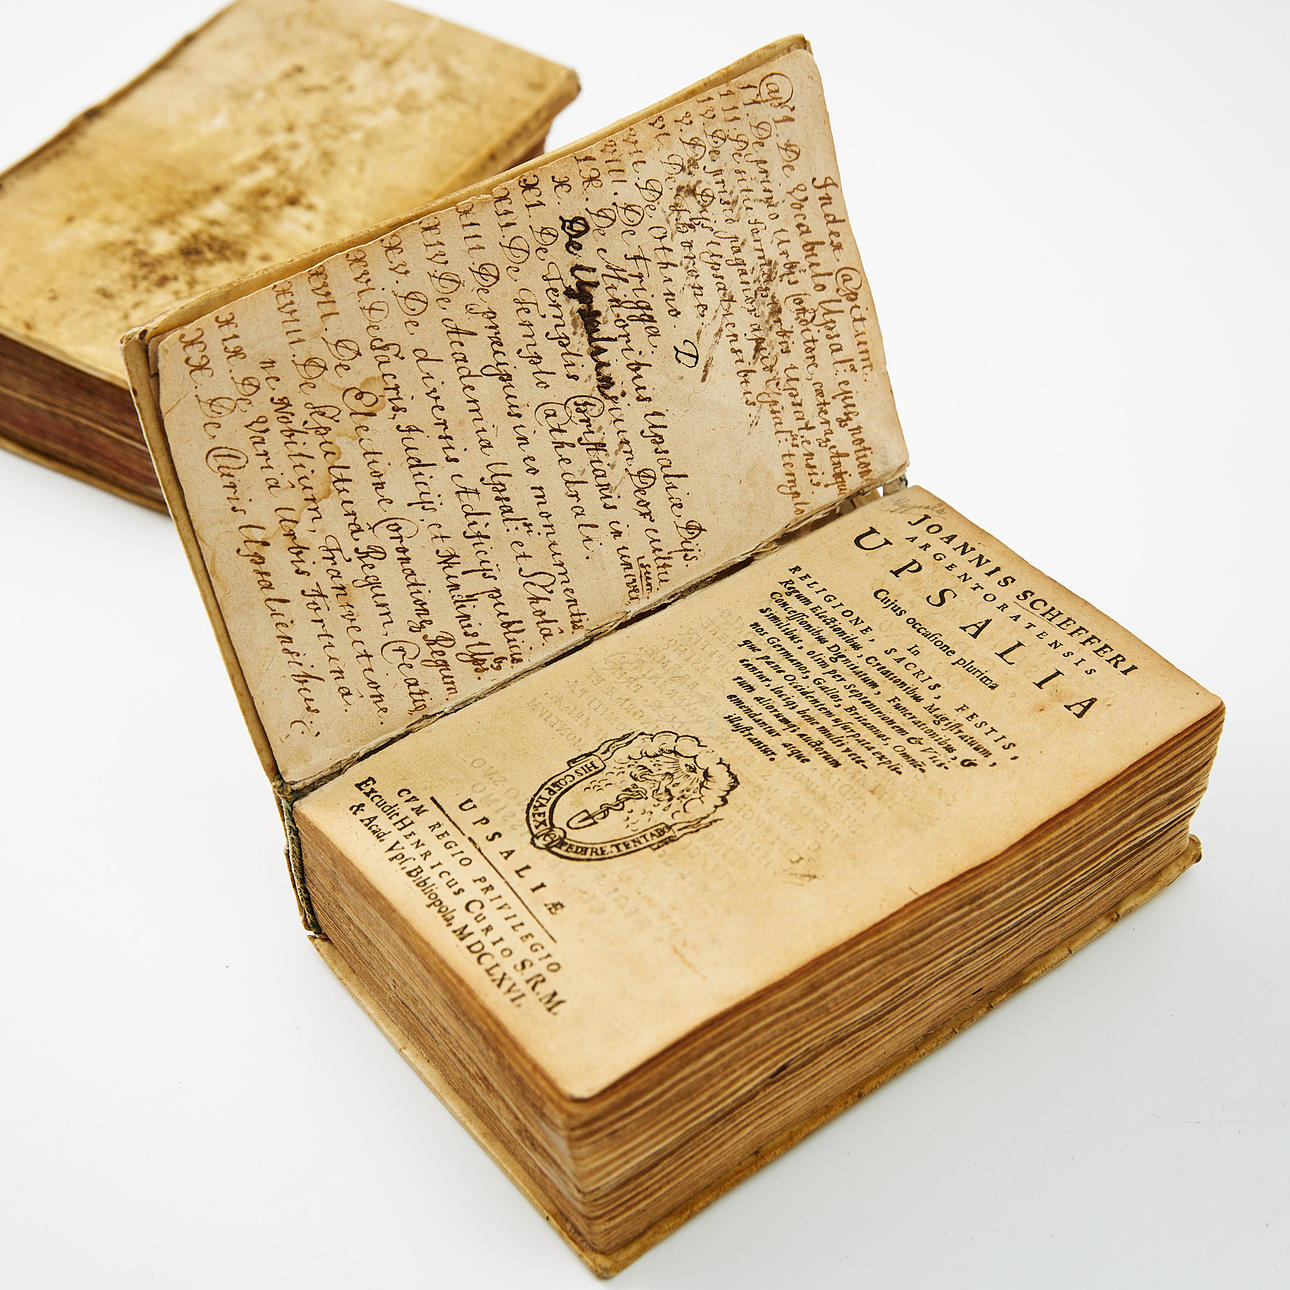 Index Capitum.
Cap. I. De Vocabulo Upsal: ejusq notione
II. De primo Urbis Conditore, cæteraq Antiqu
III. De situ formaq urbis Upsalensis
IV. De prisca paganor Upsal: templo
V. De Dijs Upsalensibus.
VI. De Thorone. D
VII. De Othino.
VIII. De Frigga.
IX. De Minoribus Upsaliæ Dijs.
X. De Deor cultu
XI. De Templis Christianis in univer
sum.
XII. De Templo Cathedrali.
XIII. De præcipuis in eo monumentis
XIV. De Academia Upsal: et Schola
XV. De diversis Ædificijs publicis
XVI. De Sacris, Judicijs, et Nundinis Ups.
XVII. De Electione Coronationeq Regum,
XVIII. De Sepulturâ Regum, Creatio
ne Nobilium, Transvectione.
XIX. De Variâ Urbis Fortuna.
XX. De Claris Upsaliensibus.
JOANNIS SCHEFFERI
ARGENTORATENSIS
UPSALIA
Cujus occasione plurima
In
RELIGIONE, SACRIS, FESTIS,
Regum Electionibus, Creationibus Magistratuum,
Concessionibus Dignitatum, Funerationibus, &
Similibus, olim per Septentrionem & Vici-
nos Germanos, Gallos, Britannos, Omnem-
que pæne Occidentem usurpata expli-
cantur, locisq; bene multi vete-
rum aliorumq; auctorum
emendantur atque
illustrantur.
HIS COEPTA EX
PEDIRE TENTAB
UPSALIÆ
CVM REGIO PRIVILEGIO
Excudit HENRICUS CURIO S.R.M.
& Acad. Vps. Bibliopola, MDCLXVI.